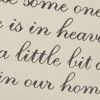 se some one
e is in heave
a little bit o
in our hom